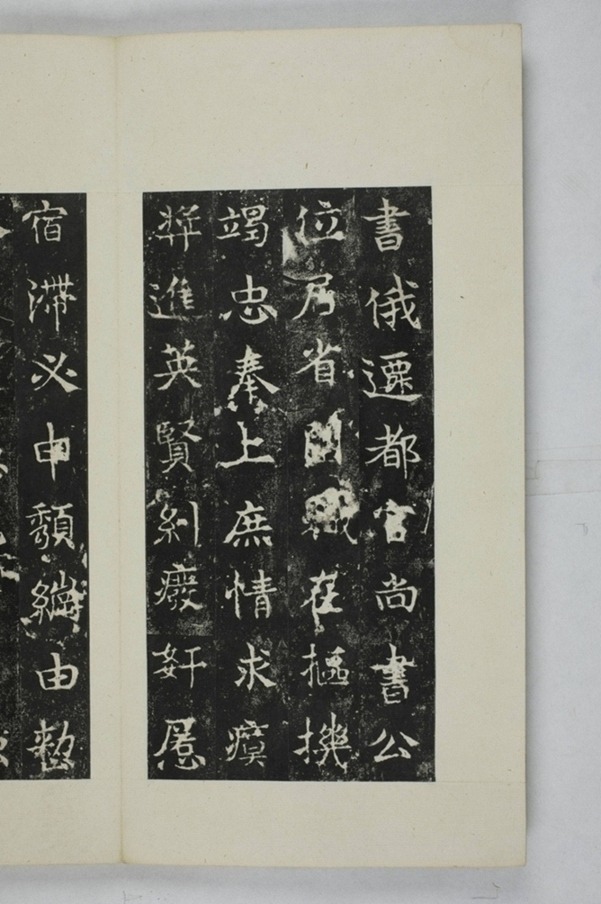 書俄遷都官尚書公
位乃省職在樞機
竭忠奉上庶情求瘼
奬進英賢糾癈奸慝
宿滯必申頹綱由整